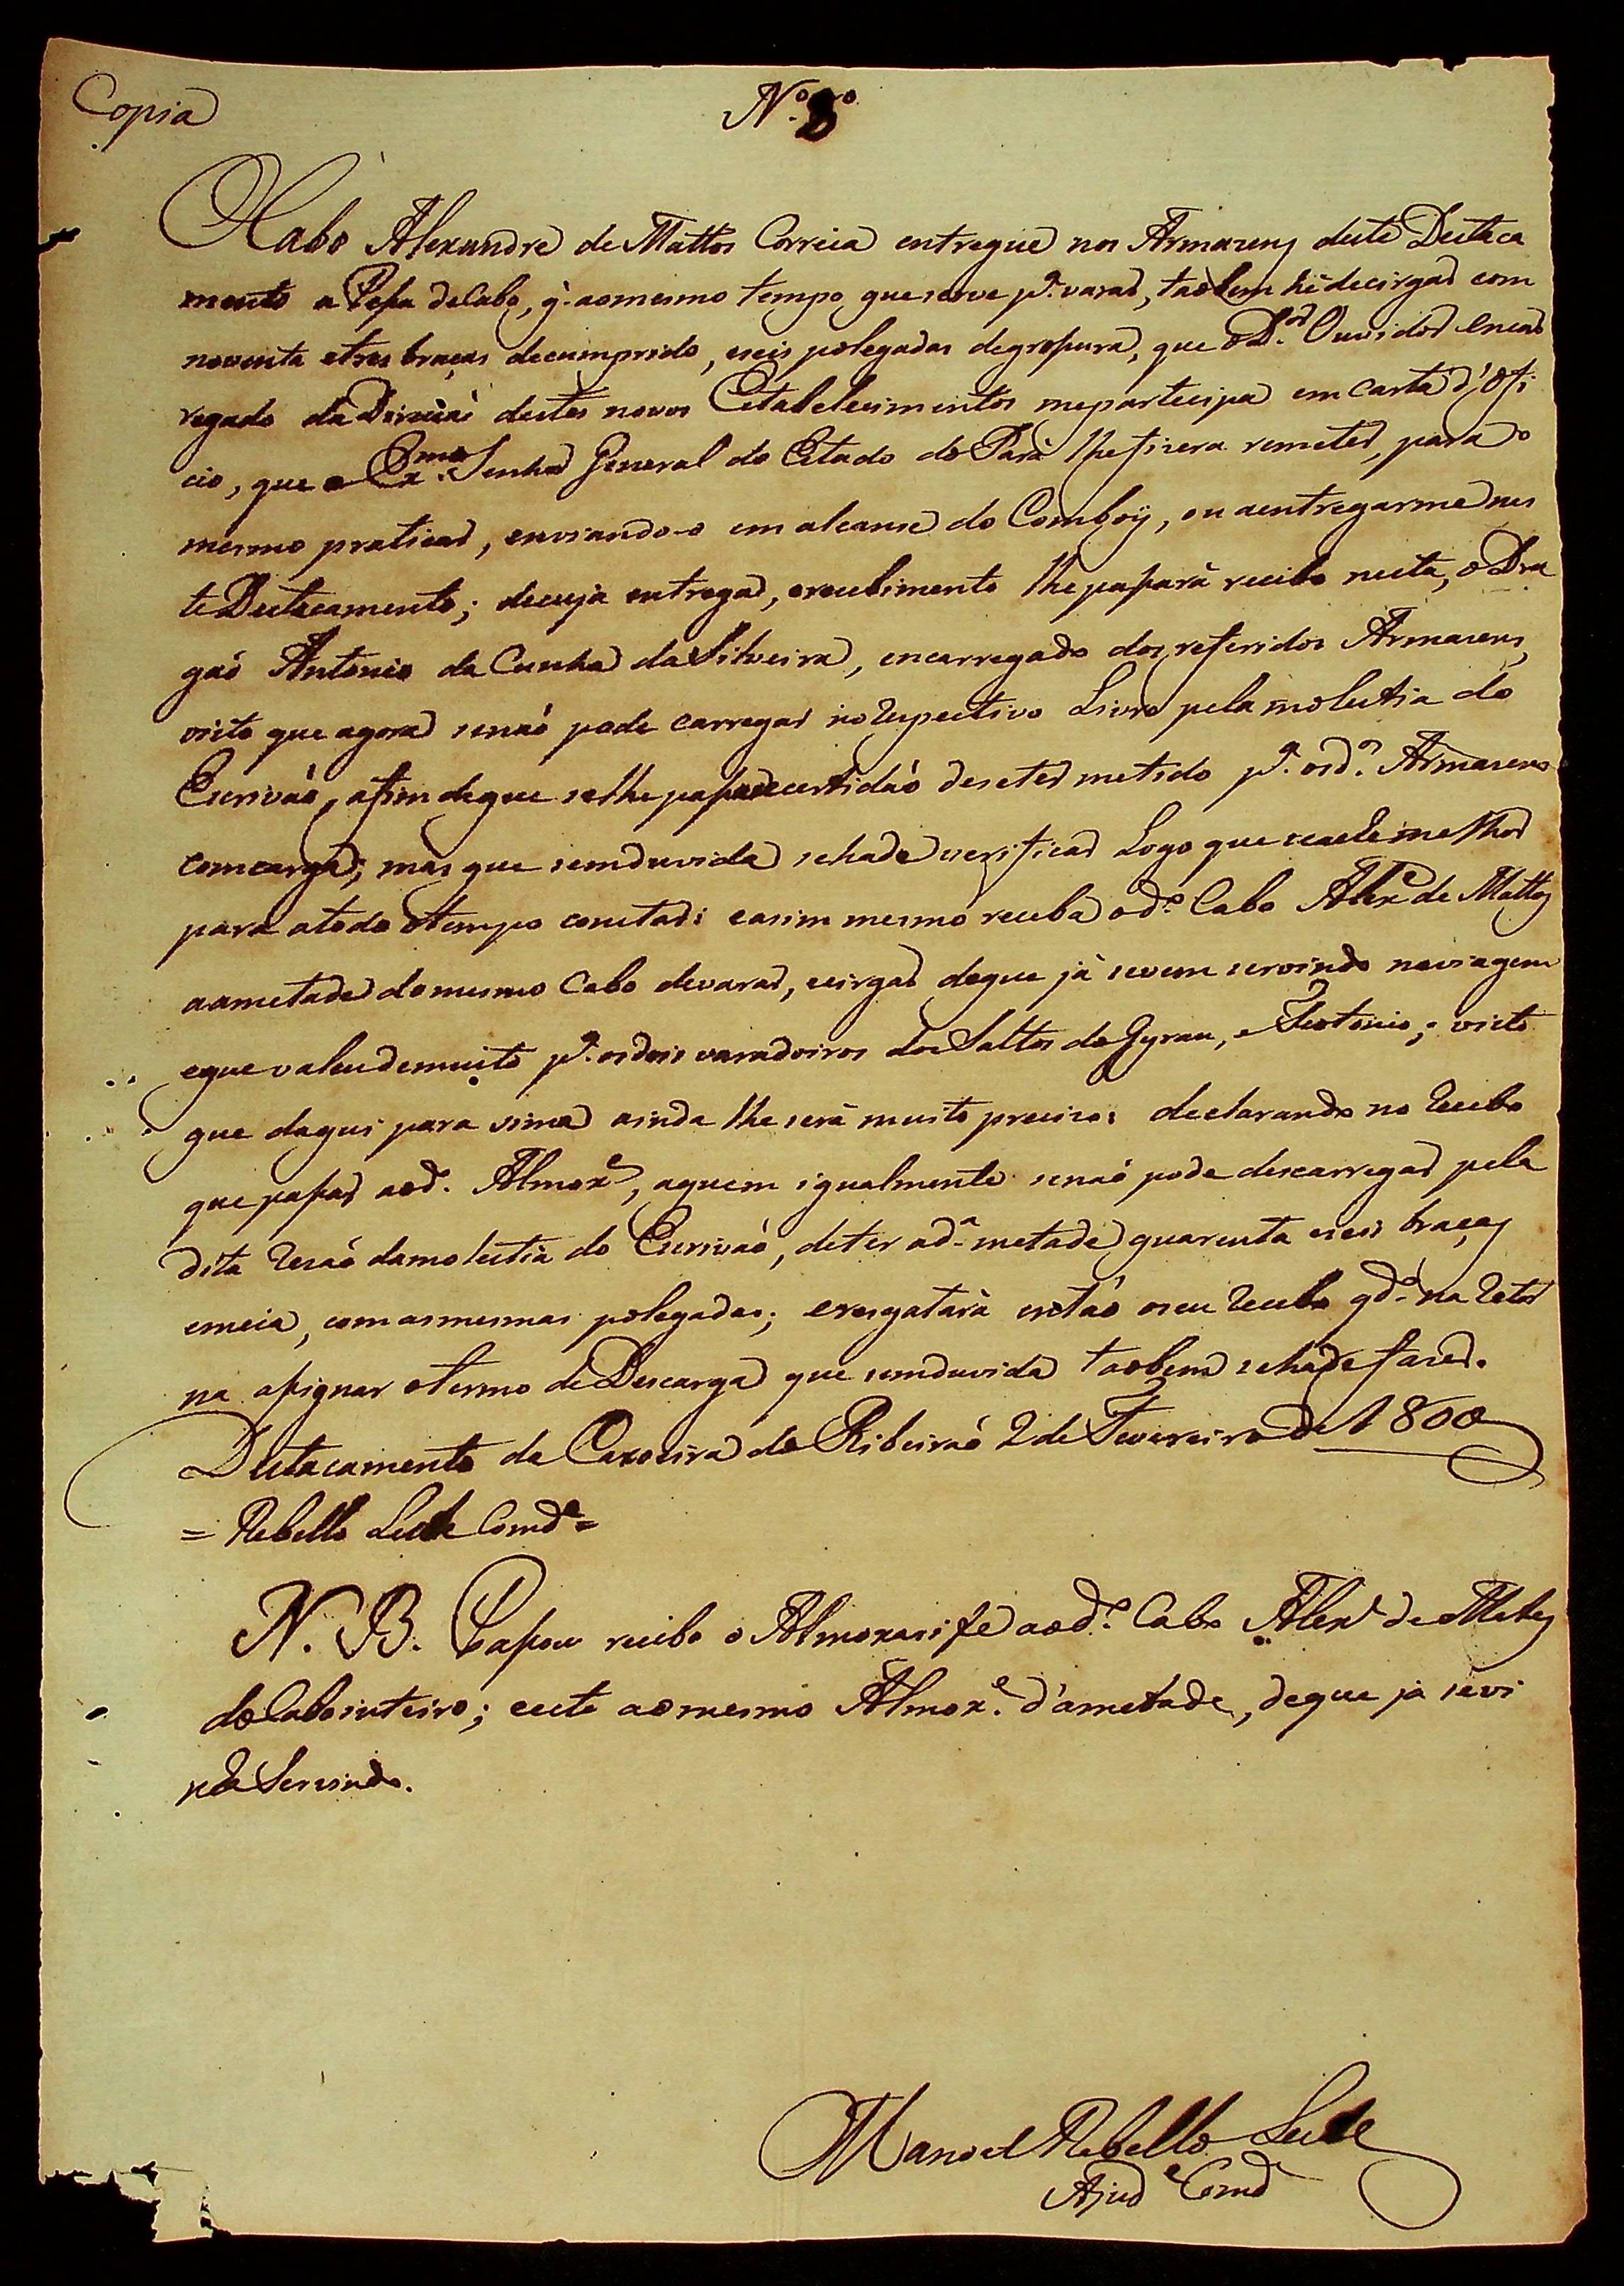 Copia
N.º 8º
O Cabo Alexandre de Mattos Correia entregue nos Armazens deste Destaca
mento a Pessa de Cabo, q. ao mesmo tempo, que serve p.ª varar, taobem hé de cirgar com
noventa e tres braças de cumprido, e seis polegadas de grossura, que o D.or Ouvidor Encar
regado da Direcçaõ destes novos Estabelecimentos me partecipa em Carta d'Ofi
cio, que o Ex.mo Senhor General do Estado do Pará lhe fizera remeter, para o
mesmo praticar, enviando-o em alcanse do Comboÿ, ou a entregarme nes
te Destacamento; de cuja entrega, e recebimento lhe passará recibo nesta, o Dra
gaõ Antonio da Cunha da Silveira, encarregado dos referidos Armazens,
visto que agora se naõ pode carregar no respectivo Livro pela molestia do
Escrivaõ, afim de que se lhe passe certidaõ de se ter metido p.ª os d.os Armazens
com carga; mas que sem duvida se hade verificar Logo que se ache melhor
para a todo o tempo constar: e asim mesmo receba o d.º Cabo Alex.e de Mattos
a ametade do mesmo Cabo de varar, e cirgar de que já se vem servindo na viagem
e que valeu de muito p.ª os dois varadoiros dos Saltos do Gyrau, e Teotonio; visto
que daqui para sima ainda lhe será muito preciso: declarando no recibo
que passar ao d. Almox.e, a quem igualmente se naõ pode descarregar pela
dita rezaõ da molestia do Escrivaõ, de ter a d.ª metade quarenta e seis braças
e meia, com as mesmas polegadas; e resgatará entaõ o seu recibo q.do na retor
na assignar o termo de Descarga que sem duvida taobem se háde fazer.
Destacamento da Caxoeira do Ribeiraõ 2 de Fevereiro de 1800
= Rebello Leite Com.de =
N. B. Passou recibo o Almoxarife ao d.º Cabo Alex.e de Mattos
do Cabo inteiro; e este ao mesmo Almox.e d'ametade, de que ja se vi
nha Servindo.
Manoel Rebello Leite
Ajud.e Com.d